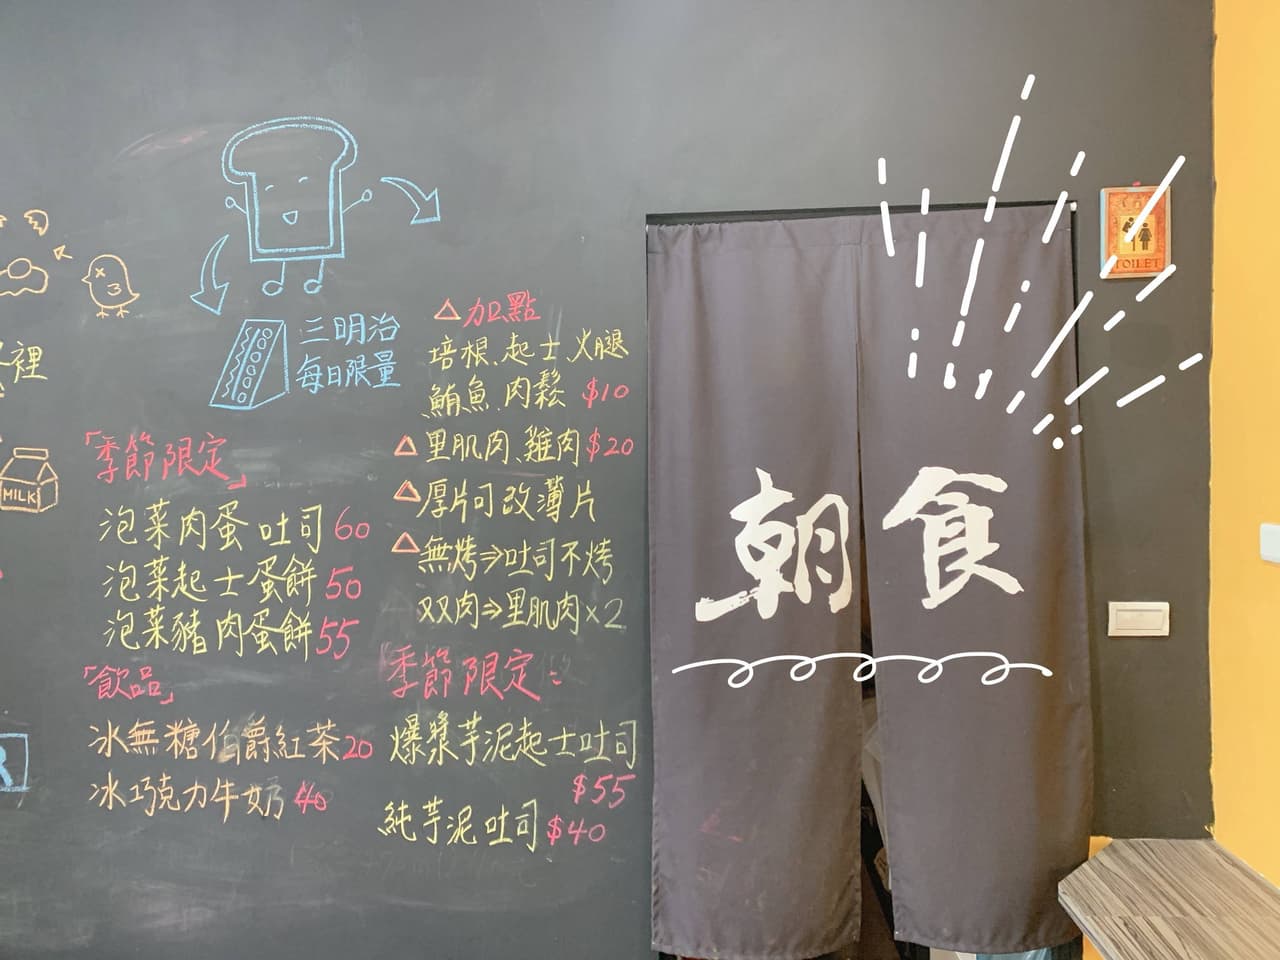 裡
MILK
三明治
每日限量
「季節限定」
泡菜肉蛋吐司60
泡菜起士蛋餅50
泡菜豬肉蛋餅55
「飲品」
冰無糖伯爵紅茶20
冰巧克力牛奶40
△加點
培根、起士、火腿
鮪魚、肉鬆 $10
△里肌肉、雞肉$20
△厚片可改薄片
△無烤⇒吐司不烤
双肉⇒里肌肉×2
季節限定:
爆漿芋泥起士吐司
$55
純芋泥吐司$40
朝食
TOILET